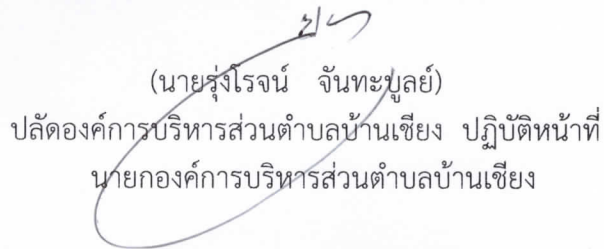 (นายรุ่งโรจน์ จันทะบูลย์)
ปลัดองค์การบริหารส่วนตำบลบ้านเชียง ปฏิบัติหน้าที่
นายกองค์การบริหารส่วนตำบลบ้านเชียง